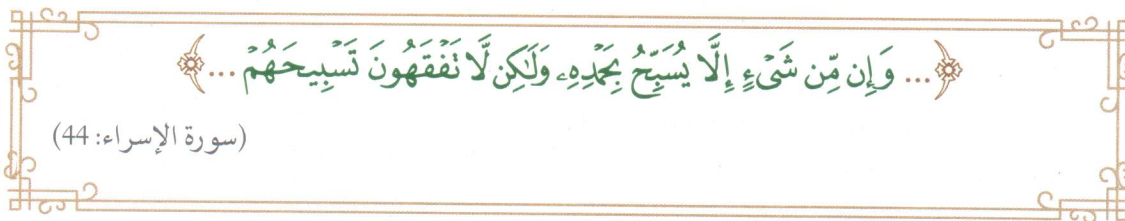 ﴿... وَإِن مِّن شَىْءٍ إِلَّا يُسَبِّحُ بِحَمْدِهِۦ وَلَٰكِن لَّا تَفْقَهُونَ تَسْبِيحَهُمْ ...﴾
(سورة الإسراء: 44)